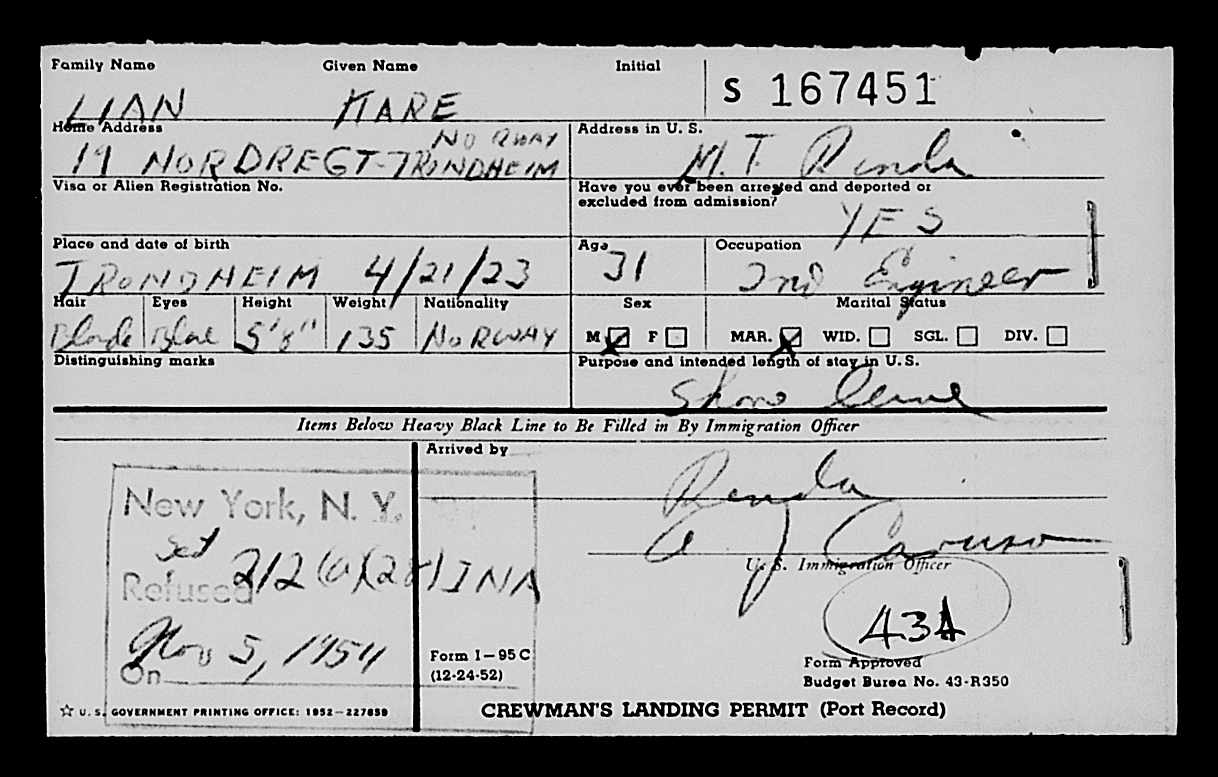 Family Name Given Name Initial
S 167451
LIAN KARE
Home Address Address in U. S.
NORWAY
19 NORDREGT-TRONDHEIM M.T. Renda
Visa or Alien Registration No. Have you ever been arrested and deported or
excluded from admission?
YES
Place and date of birth Age Occupation
TRONDHEIM 4/21/23 31 2nd Engineer
Hair Eyes Height Weight Nationality Sex Marital Status
Blonde Blue 5'8" 135 NORWAY M F MAR. WID. SGL. DIV.
Distinguishing marks Purpose and intended length of stay in U.S.
Shore leave
Items Below Heavy Black Line to Be Filled in By Immigration Officer
Arrived by
Renda
New York, N. Y.
Sect 212(a)(28) INA
Refused
A J Caruso
U. S. Immigration Officer
Nov 5, 1954
On
434
Form I-95 C
(12-24-52)
Form Approved
Budget Burea No. 43-R350
☆ U. S. GOVERNMENT PRINTING OFFICE: 1952-227859
CREWMAN'S LANDING PERMIT (Port Record)